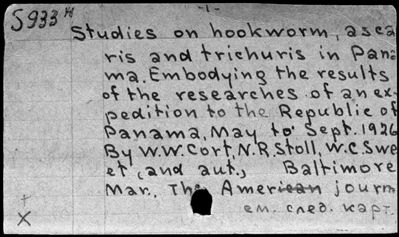 S933 H
-1-
Studies on hookworm, asca
ris and trichuris in Pana
ma. Embodying the results
of the researches of an ex-
pedition to the Republic of
Panama, May to Sept. 1926
By W.W. Cort, N.R. Stoll, W.C. Swe
et, and aut., Baltimore
Mar., The American journ
ем. след. карт.
+
X